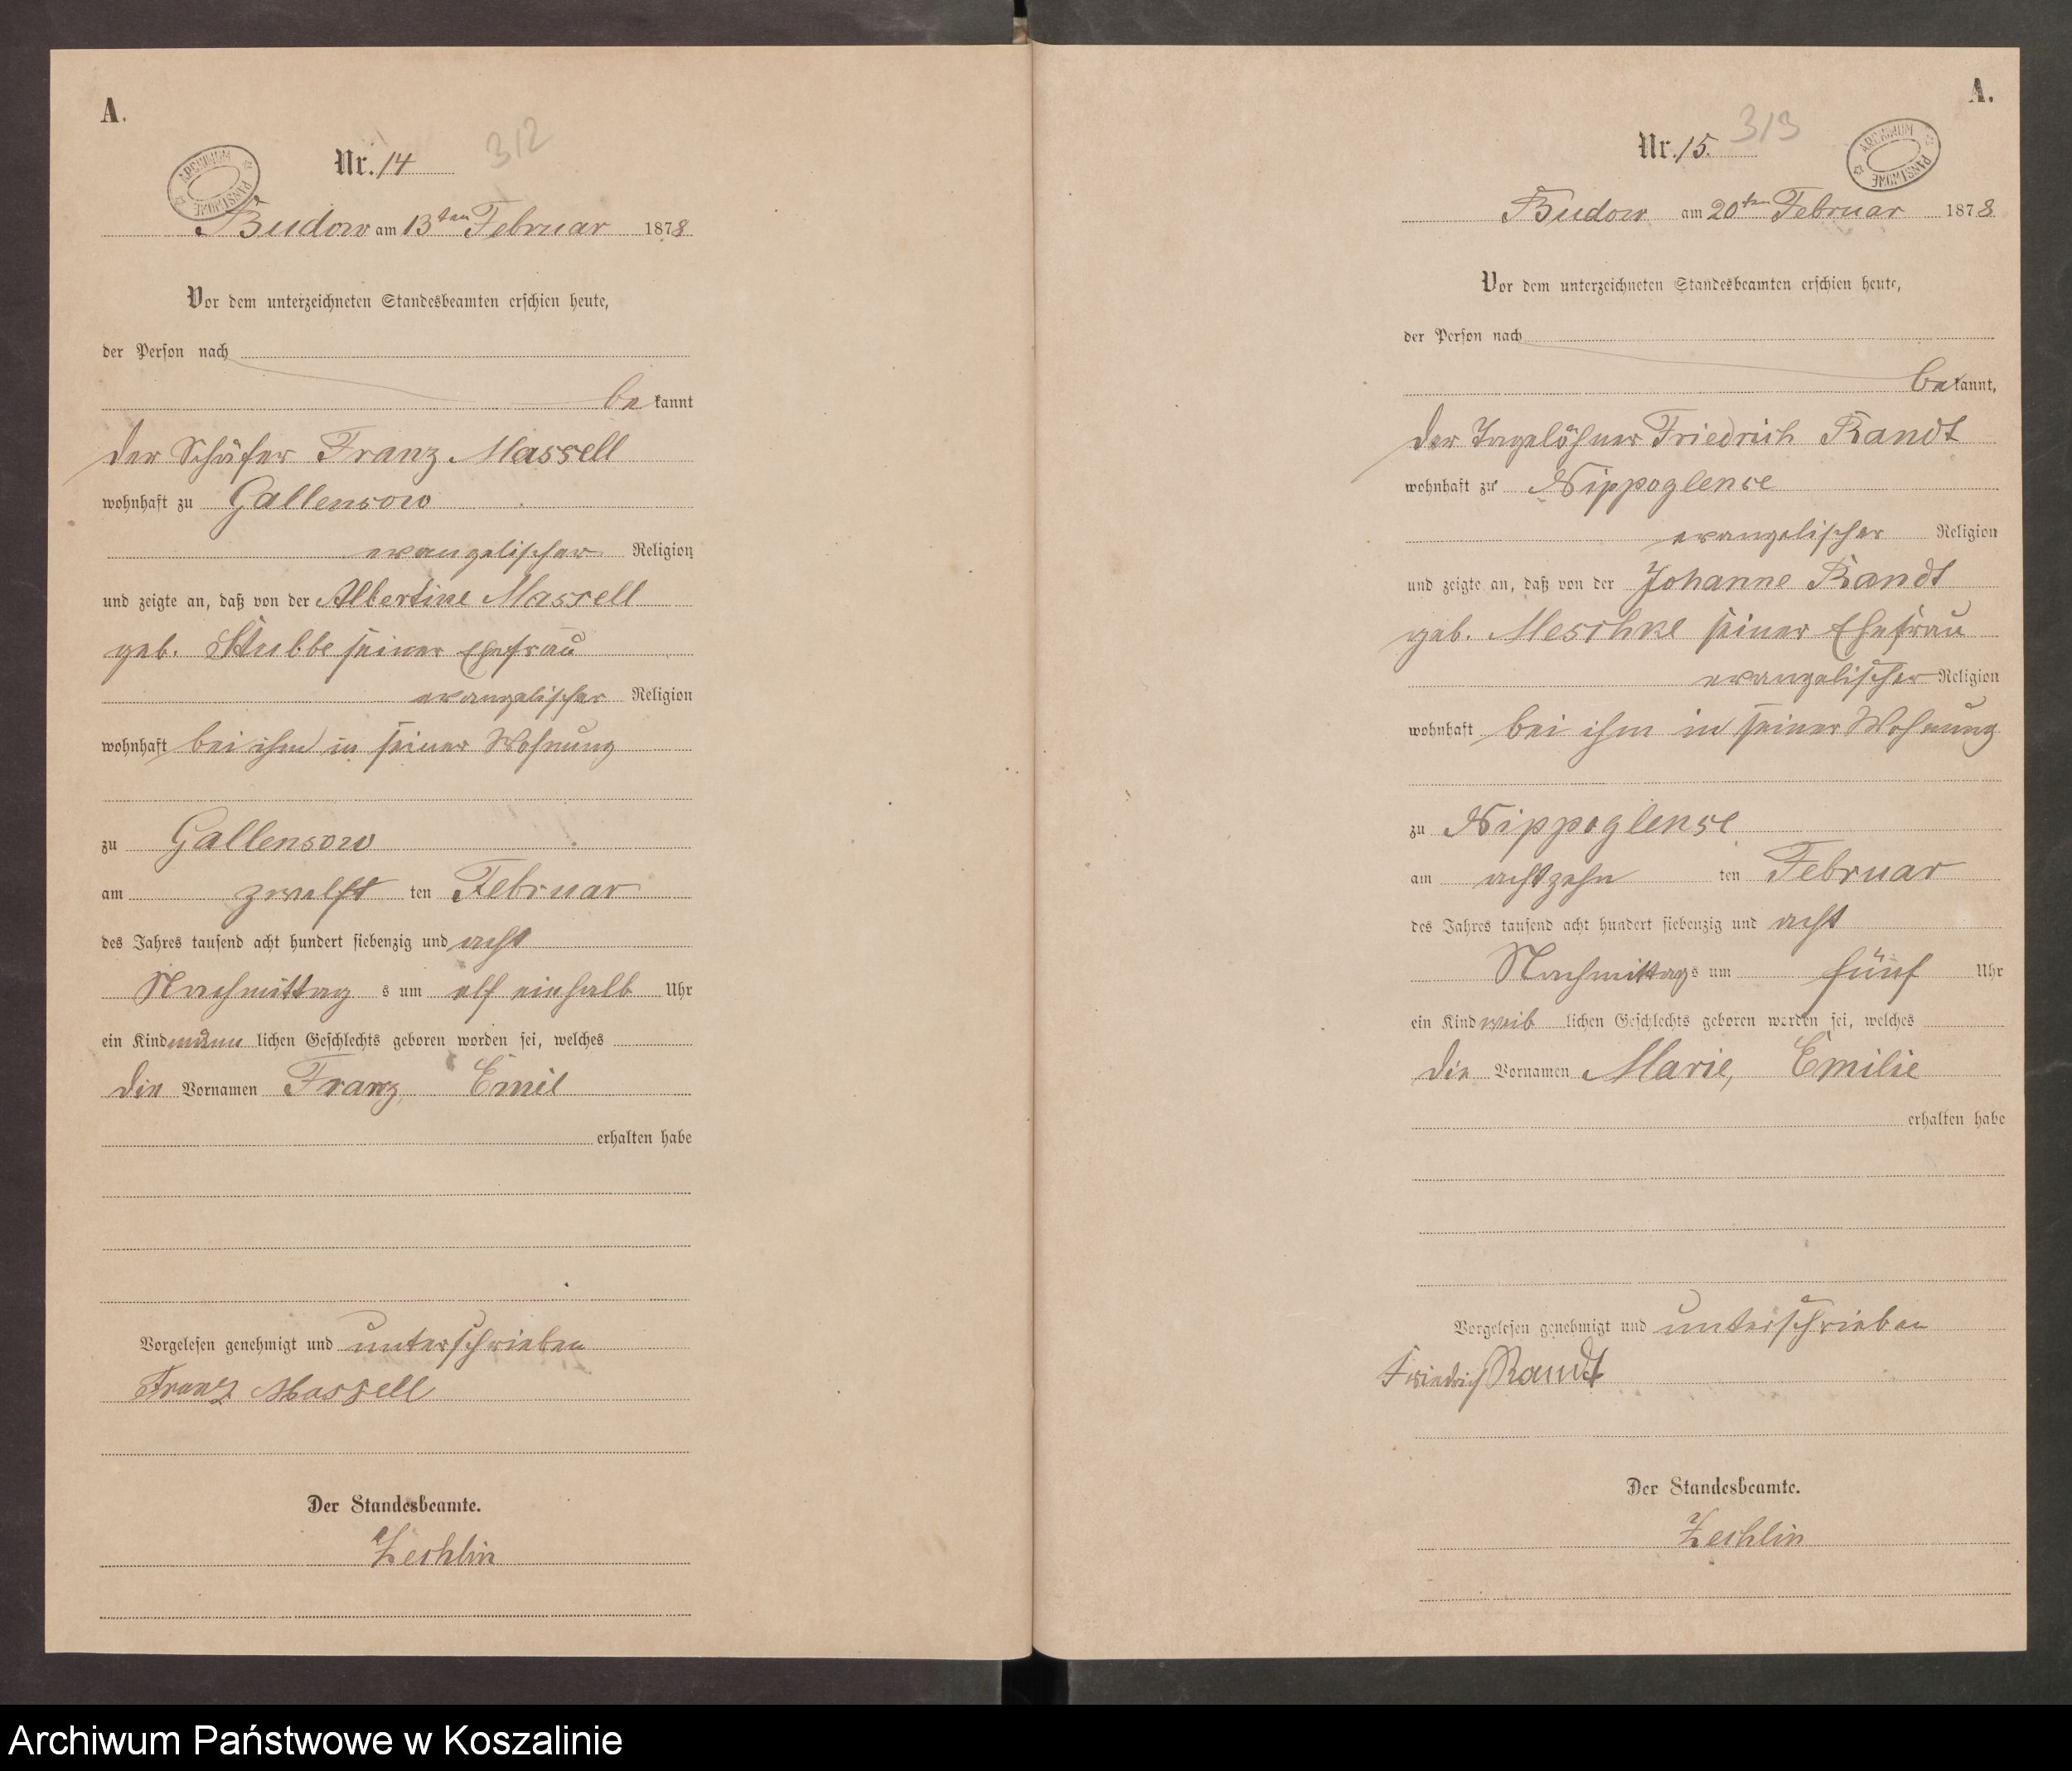 A.
Nr. 14
312
ARCHIWUM PAŃSTWOWE
Budow am 13ten Februar 1878
Vor dem unterzeichneten Standesbeamten erschien heute,
der Person nach
bekannt
der Schäfer Franz Massell
wohnhaft zu Gallensow
evangelischer Religion
und zeigte an, daß von der Albertine Massell
geb. Stubbe seiner Ehefrau
evangelischer Religion
wohnhaft bei ihm in seiner Wohnung
zu Gallensow
am zwölften Februar
des Jahres tausend acht hundert siebenzig und acht
Nachmittags um elf einhalb Uhr
ein Kind männlichen Geschlechts geboren worden sei, welches
die Vornamen Franz, Emil
erhalten habe
Vorgelesen genehmigt und unterschrieben
Franz Massell
Der Standesbeamte.
Zechlin
A.
Nr. 15.
313
ARCHIWUM PAŃSTWOWE
Budow am 20ten Februar 1878
Vor dem unterzeichneten Standesbeamten erschien heute,
der Person nach
bekannt,
der Tagelöhner Friedrich Randt
wohnhaft zu Nippoglense
evangelischer Religion
und zeigte an, daß von der Johanne Randt
geb. Meschke seiner Ehefrau
evangelischer Religion
wohnhaft bei ihm in seiner Wohnung
zu Nippoglense
am achtzehnten Februar
des Jahres tausend acht hundert siebenzig und acht
Nachmittags um fünf Uhr
ein Kind weiblichen Geschlechts geboren worden sei, welches
die Vornamen Marie, Emilie
erhalten habe
Vorgelesen genehmigt und unterschrieben
Friedrich Randt
Der Standesbeamte.
Zechlin
Archiwum Państwowe w Koszalinie